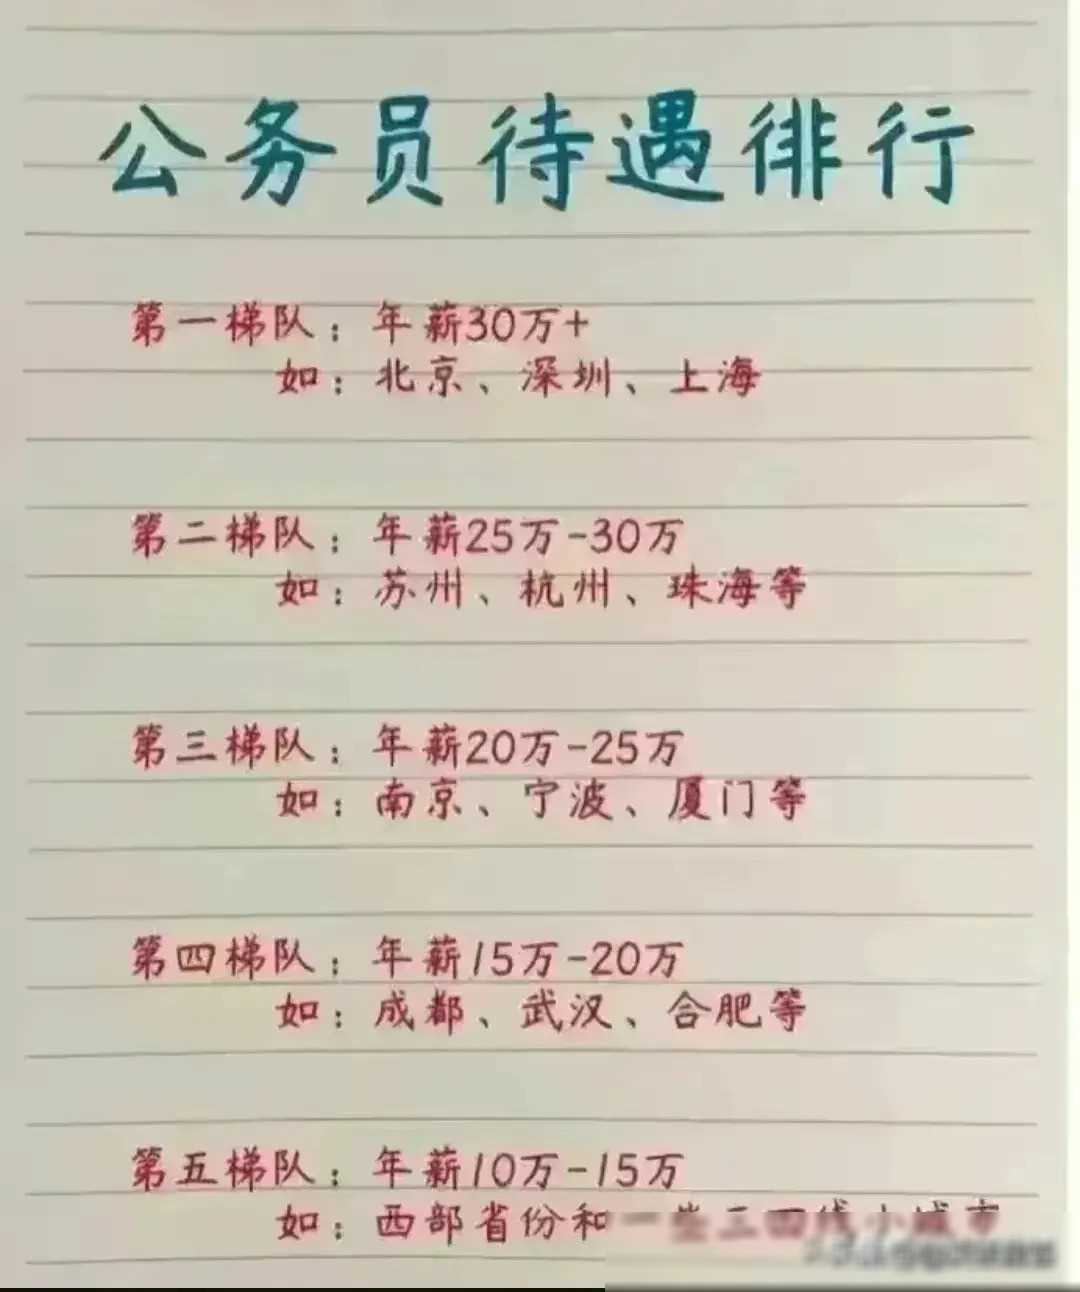 公务员待遇徘行
第一梯队：年薪30万+
如：北京、深圳、上海
第二梯队：年薪25万-30万
如：苏州、杭州、珠海等
第三梯队：年薪20万-25万
如：南京、宁波、厦门等
第四梯队：年薪15万-20万
如：成都、武汉、合肥等
第五梯队：年薪10万-15万
如：西部省份和一些三四线小城市